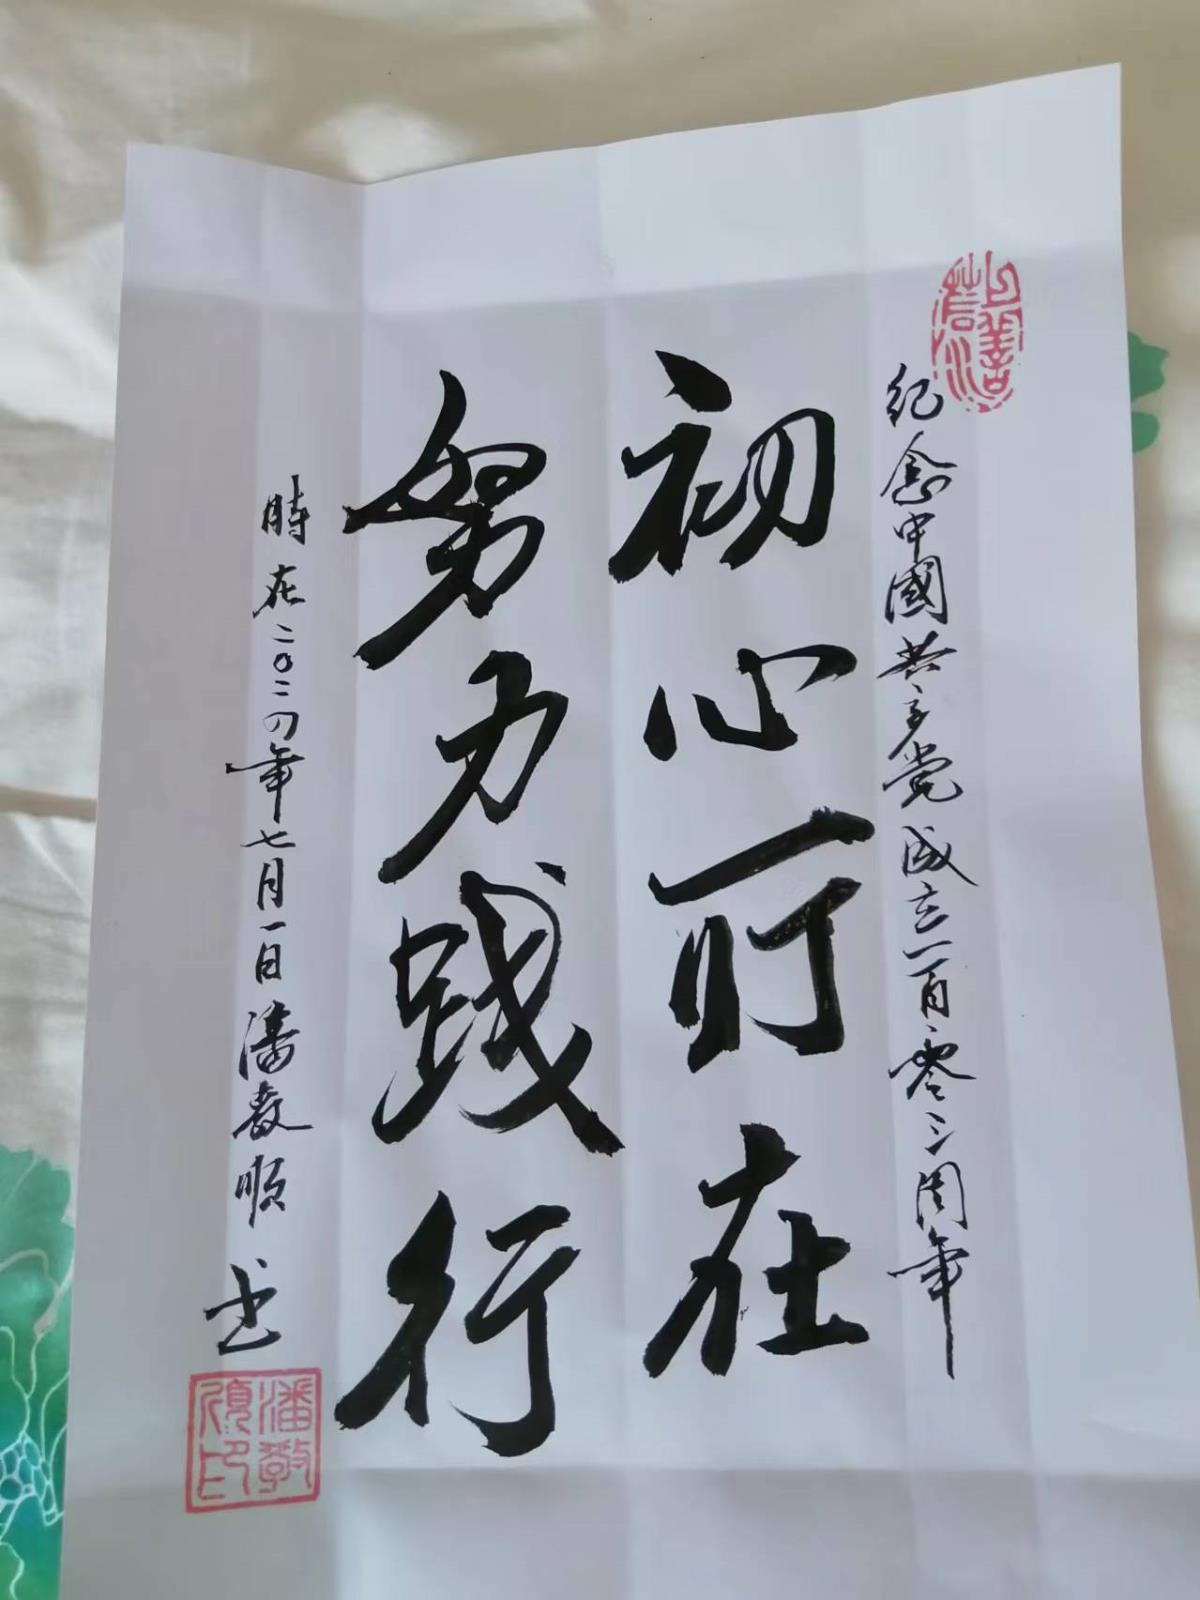 上善若水
纪念中國共产党成立一百零三周年
初心所在
努力践行
時在二〇二四年七月一日潘敬順书
潘敬順印